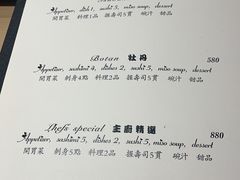 Appetizer, dish 1, sushi 5, miso soup, dessert
開胃菜 料理1品 握壽司5貫 碗汁 甜品
Botan 牡丹 580
Appetizer, sashimi 4, dishes 2, sushi 5, miso soup, dessert
開胃菜 刺身4點 料理2品 握壽司5貫 碗汁 甜品
Chef's special 主廚精選 880
Appetizer, sashimi 5, dishes 2, sushi 5, miso soup, dessert
開胃菜 刺身5點 料理2品 握壽司5貫 碗汁 甜品